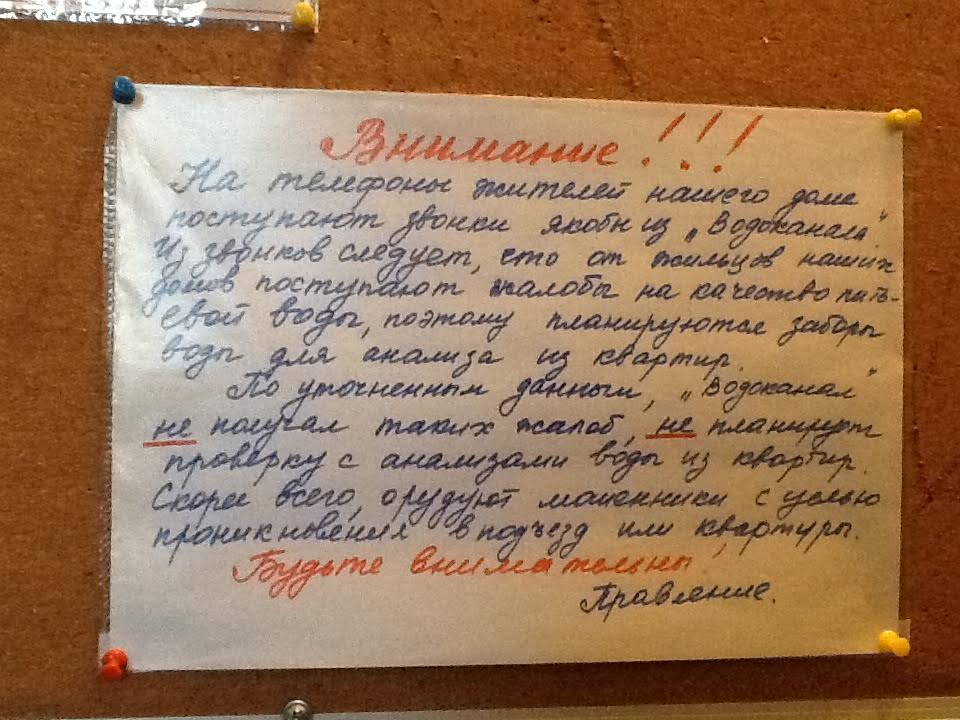 Внимание!!!
На телефоны жителей нашего дома
поступают звонки якобы из „Водоканала"
Из звонков следует, что от жильцов наших
домов поступают жалобы на качество пить-
евой воды, поэтому планируются заборы
воды для анализа из квартир.
По уточненным данным, „Водоканал"
не получал таких жалоб, не планирует
проверку с анализами воды из квартир.
Скорее всего, орудуют мошенники с целью
проникновения в подъезд или квартиры.
Будьте внимательны!
Правление.